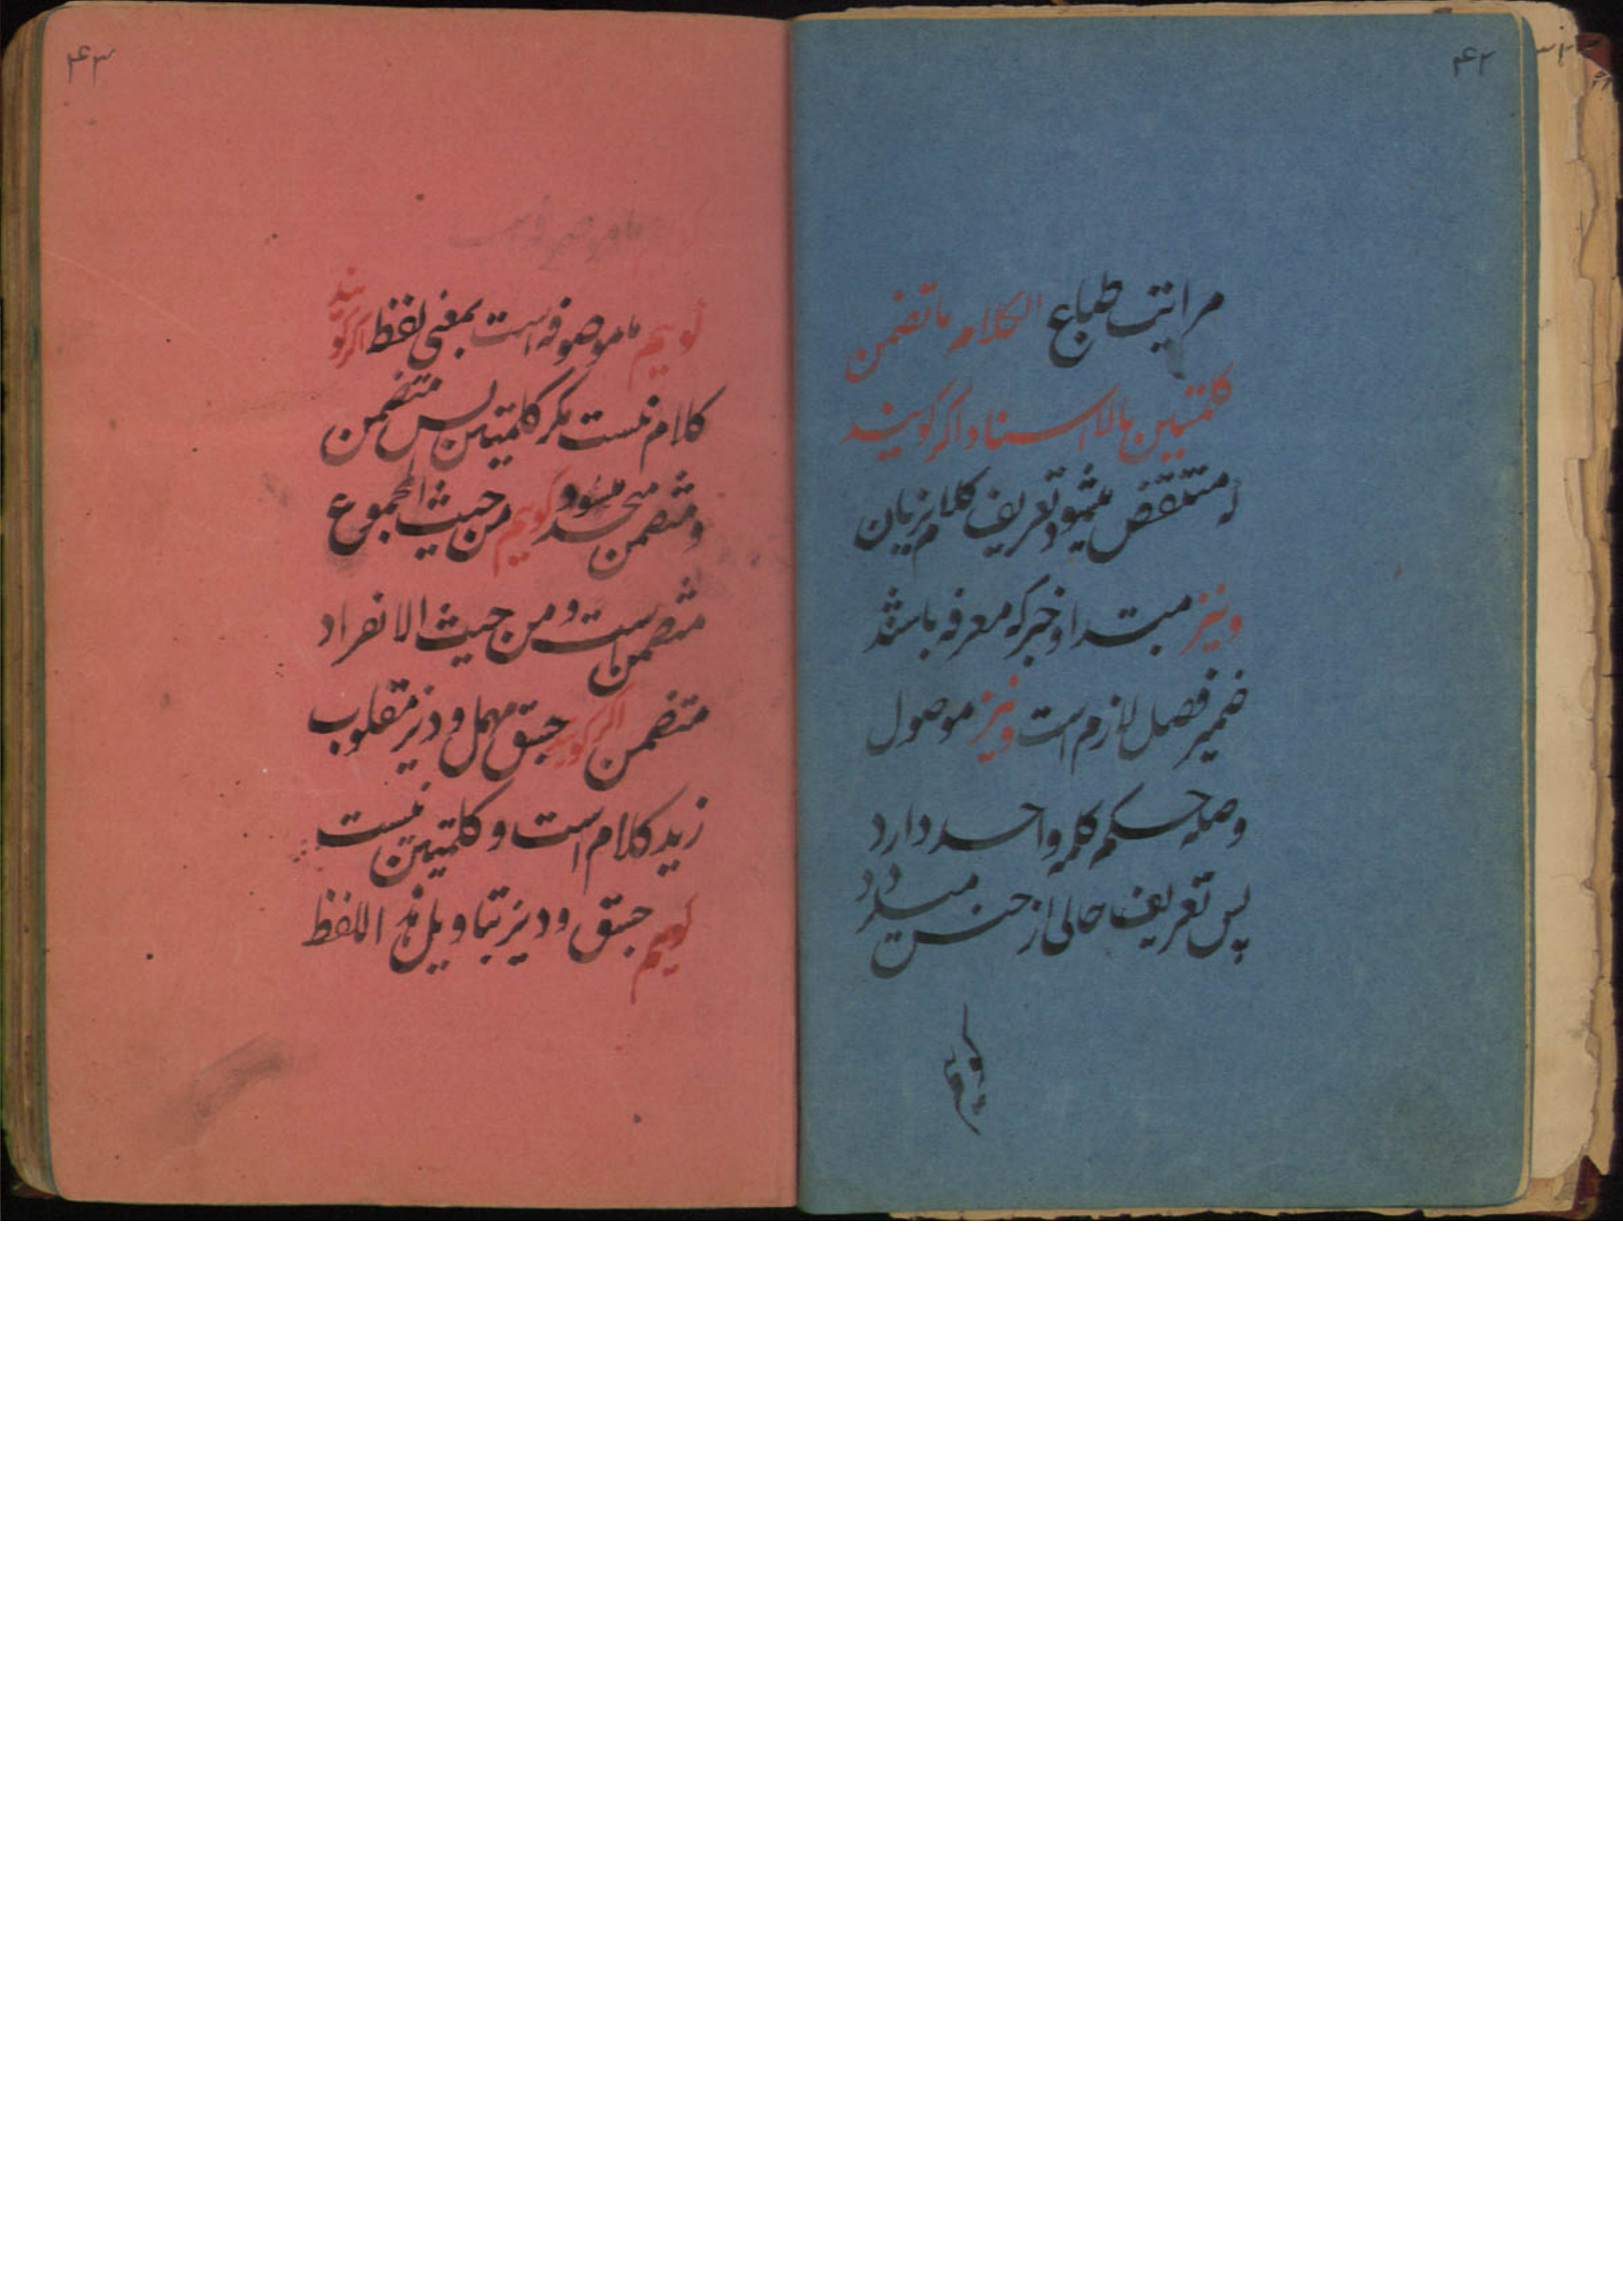 ۴۲
مراتب طباع الکلام ما تضمن
کلمتین بالاسناد اگر گویند
که منتقض میشود تعریف کلام بزبان
و نیز مبتدا و خبر که معرفه باشند
ضمیر فصل لازم است و نیز موصول
و صله حکم کلمه واحد دارد
پس تعریف خالی از حسن میگردد
گویم
۴۳
گویم ما موصوفه است بمعنی لفظ اگر گویند
کلام نیست مگر کلمتین پس متضمن
و متضمن متحد میشود گویم من حیث المجموع
متضمن است و من حیث الانفراد
متضمن اگر گویند جسق مهمل و دیز مقلوب
زید کلام است و کلمتین نیست
گویم جسق و دیز بتاویل هذا اللفظ